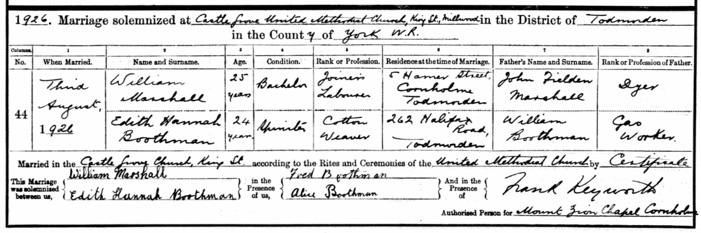 1926. Marriage solemnized at Castle Grove United Methodist Church, King St, Millwood in the District of Todmorden
in the County of York W.R.
Columns. 1 2 3 4 5 6 7 8
No. When Married. Name and Surname. Age. Condition. Rank or Profession. Residence at the time of Marriage. Father's Name and Surname. Rank or Profession of Father.
44
Third August, 1926
William Marshall 25 years Bachelor Joiner's Labourer 5 Hamer Street, Cornholme Todmorden John Fielden Marshall Dyer
Edith Hannah Boothman 24 years Spinster Cotton Weaver 262 Halifax Road, Todmorden William Boothman Gas Worker.
Married in the Castle Grove Church, King St. according to the Rites and Ceremonies of the United Methodist Church by Certificate
This Marriage was solemnized between us,
William Marshall
Edith Hannah Boothman
in the Presence of us,
Fred Boothman
Alice Boothman
And in the Presence of
Frank Keyworth
Authorised Person for Mount Zion Chapel Cornholme